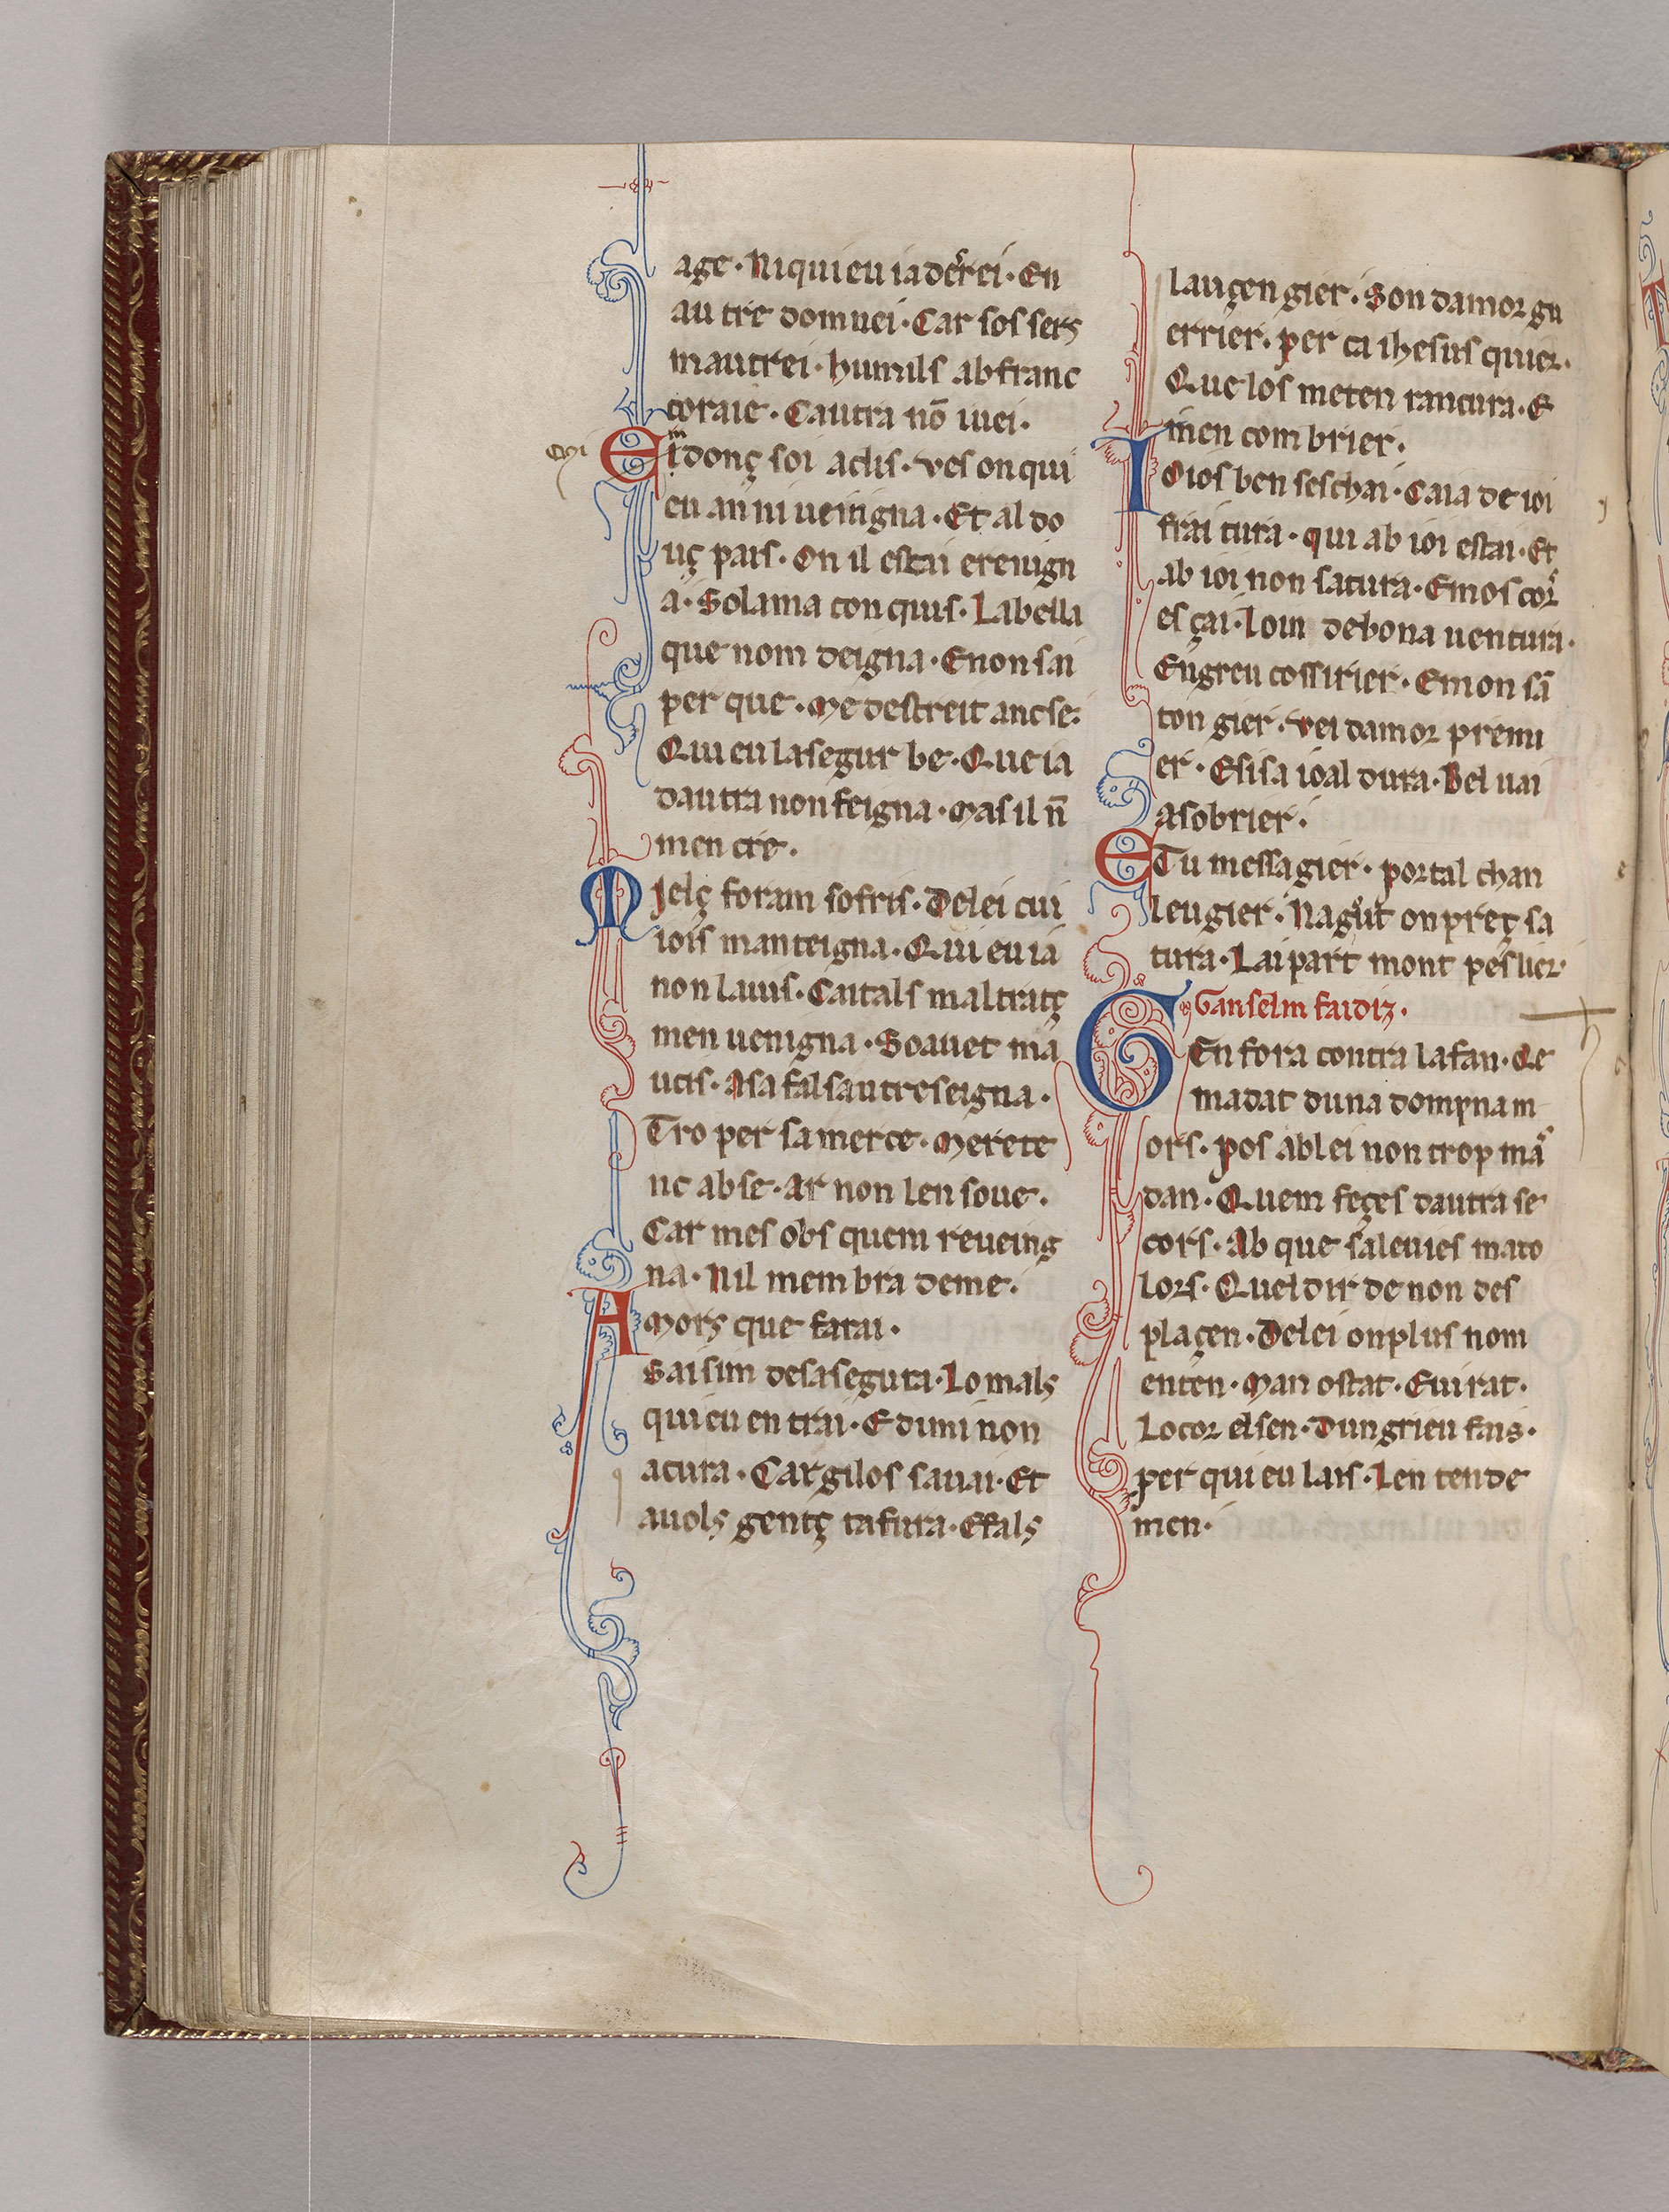 age · Ni qui eu ia derei · En
au tre domnei · Car sos sers
mautrei · humils ab franc
coraie · Cautra nō uuei ·
El donç soi aclis · ves on qui
eu an ni ueingna · Et al do
uç pais · On il estai e reuign
a · Sol ama conquis · La bella
que nom deigna · E non sai
per que · Me destreit ancse ·
Qui eu la segur be · Que ia
dautra non feigna · Mas il n̄
men cre ·
Mielç foram sofris · De lei cui
iois manteigna · Qui eu ia
non lauis · Caitals maltratç
men uenigna · Soauet ma
ucis · A sa falsa utreseigna ·
Tro per sa merce · Me rete
nc ab se · Ar non len soue ·
Car mes obs quem reueing
na · Nil membra de me ·
Amors que farai ·
Gaisim desasegura · Lo mals
qui eu en trai · E dimi non
a cura · Car gilos sauai · Et
auols gentç tafura · E fals
lauçengier · Son damor gu
errier · per ca ihesus quier ·
Que los meten rancura · E
men combrier ·
Ioios ben seschai · Caia de ioi
frai tura · qui ab ioi estai · Et
ab ioi non satura · E mos cor
es çai · Loin de bona uentura ·
En greu cossirier · E mon sā
ton gier · vei damor premi
er · E si sa ioal dura · Bel uai
a sobrier ·
E Tu messagier · portal chan
leugier · Nagut on preç sa
tura · Lai part mont pesher
Ganselm faidiz ·
GEn fora contra lafan · Qe
madat duna dompna m
ors · pos ab lei non trop mā
dan · Quem feçes dautra se
cors · Ab que salenies ma do
lors · Quel dir de non des
plaçen · De lei on plus nom
enten · Man ostat · E uirat ·
Lo cor el sen · Dun grieu fais ·
per qui eu lais · Len tende
men ·